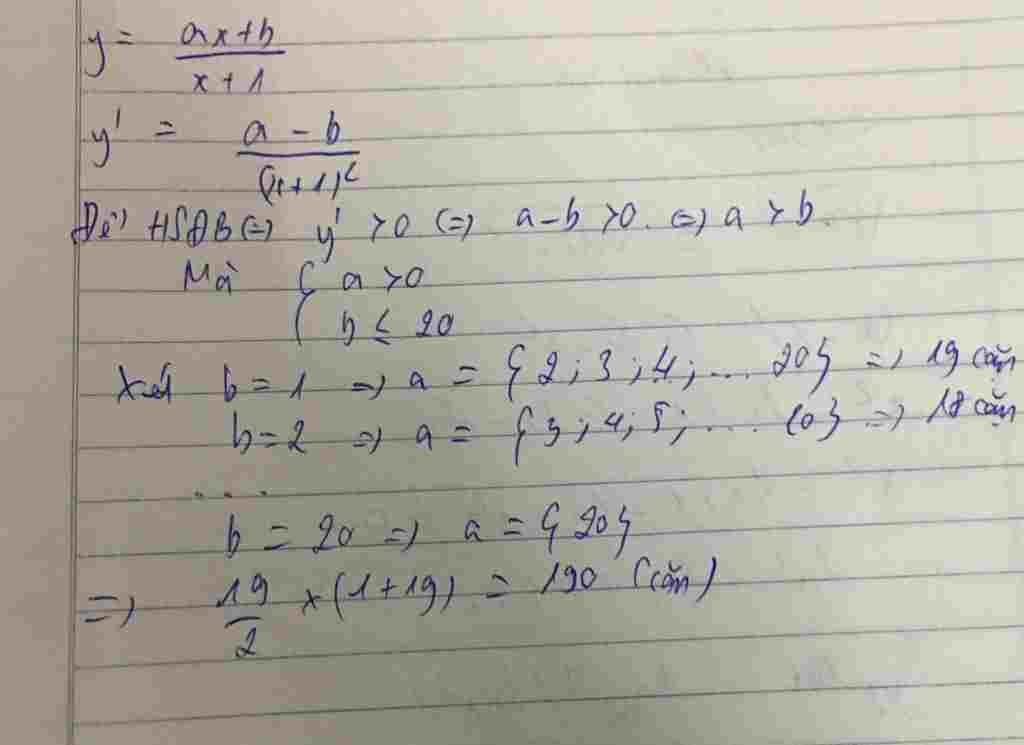 y = (ax+b)/(x+1)
y' = (a-b)/(x+1)²
Để HSĐB (=) y' > 0 (=) a-b > 0. =) a > b.
Mà { a > 0
b ≤ 20
Xét b = 1 =) a = {2; 3; 4; ... 20} =) 19 cặp
b = 2 =) a = {3; 4; 5; ... 20} =) 18 cặp
....
b = 20 =) a = {20}
=) 19/2 x (1+19) = 190 (cặp)